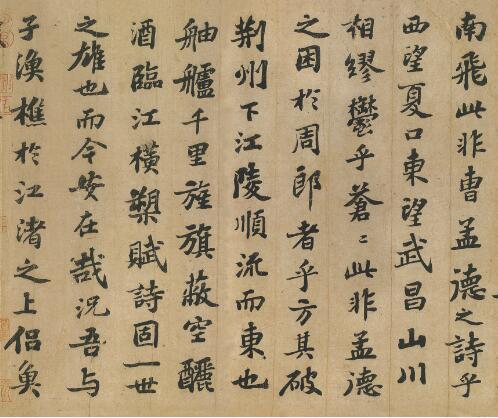 南飛此非曹孟德之詩乎
西望夏口東望武昌山川
相繆鬱乎蒼〻此非孟德
之困於周郎者乎方其破
荊州下江陵順流而東也
舳艫千里旌旗蔽空釃
酒臨江橫槊賦詩固一世
之雄也而今安在哉況吾與
子漁樵於江渚之上侶魚